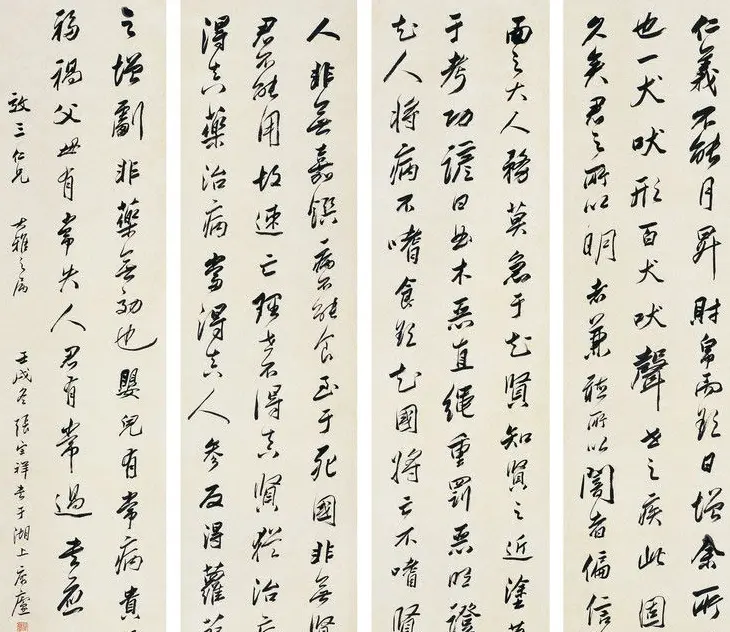 仁義不能月昇財帛而欲日增余所
也一犬吠形百犬吠聲世之疾此固
久矣君之所以明者兼聽所以闇者偏信
面之大人務莫急于知賢知賢之近塗
于考功諺曰曲木惡直繩重罰惡明證
知人將病不嗜食欲知國將亡不嗜賢
人非無嘉饌病不能食至于死國非無賢
君不能用故速亡理世不得真賢猶治
得真藥治病當得真人參反得蘿
之增劇非藥無功也嬰兒有常病貴
禍父母有常失人君有常過書應
三仁兄 大雅之屬 壬戌冬張宗祥書于湖上居廬